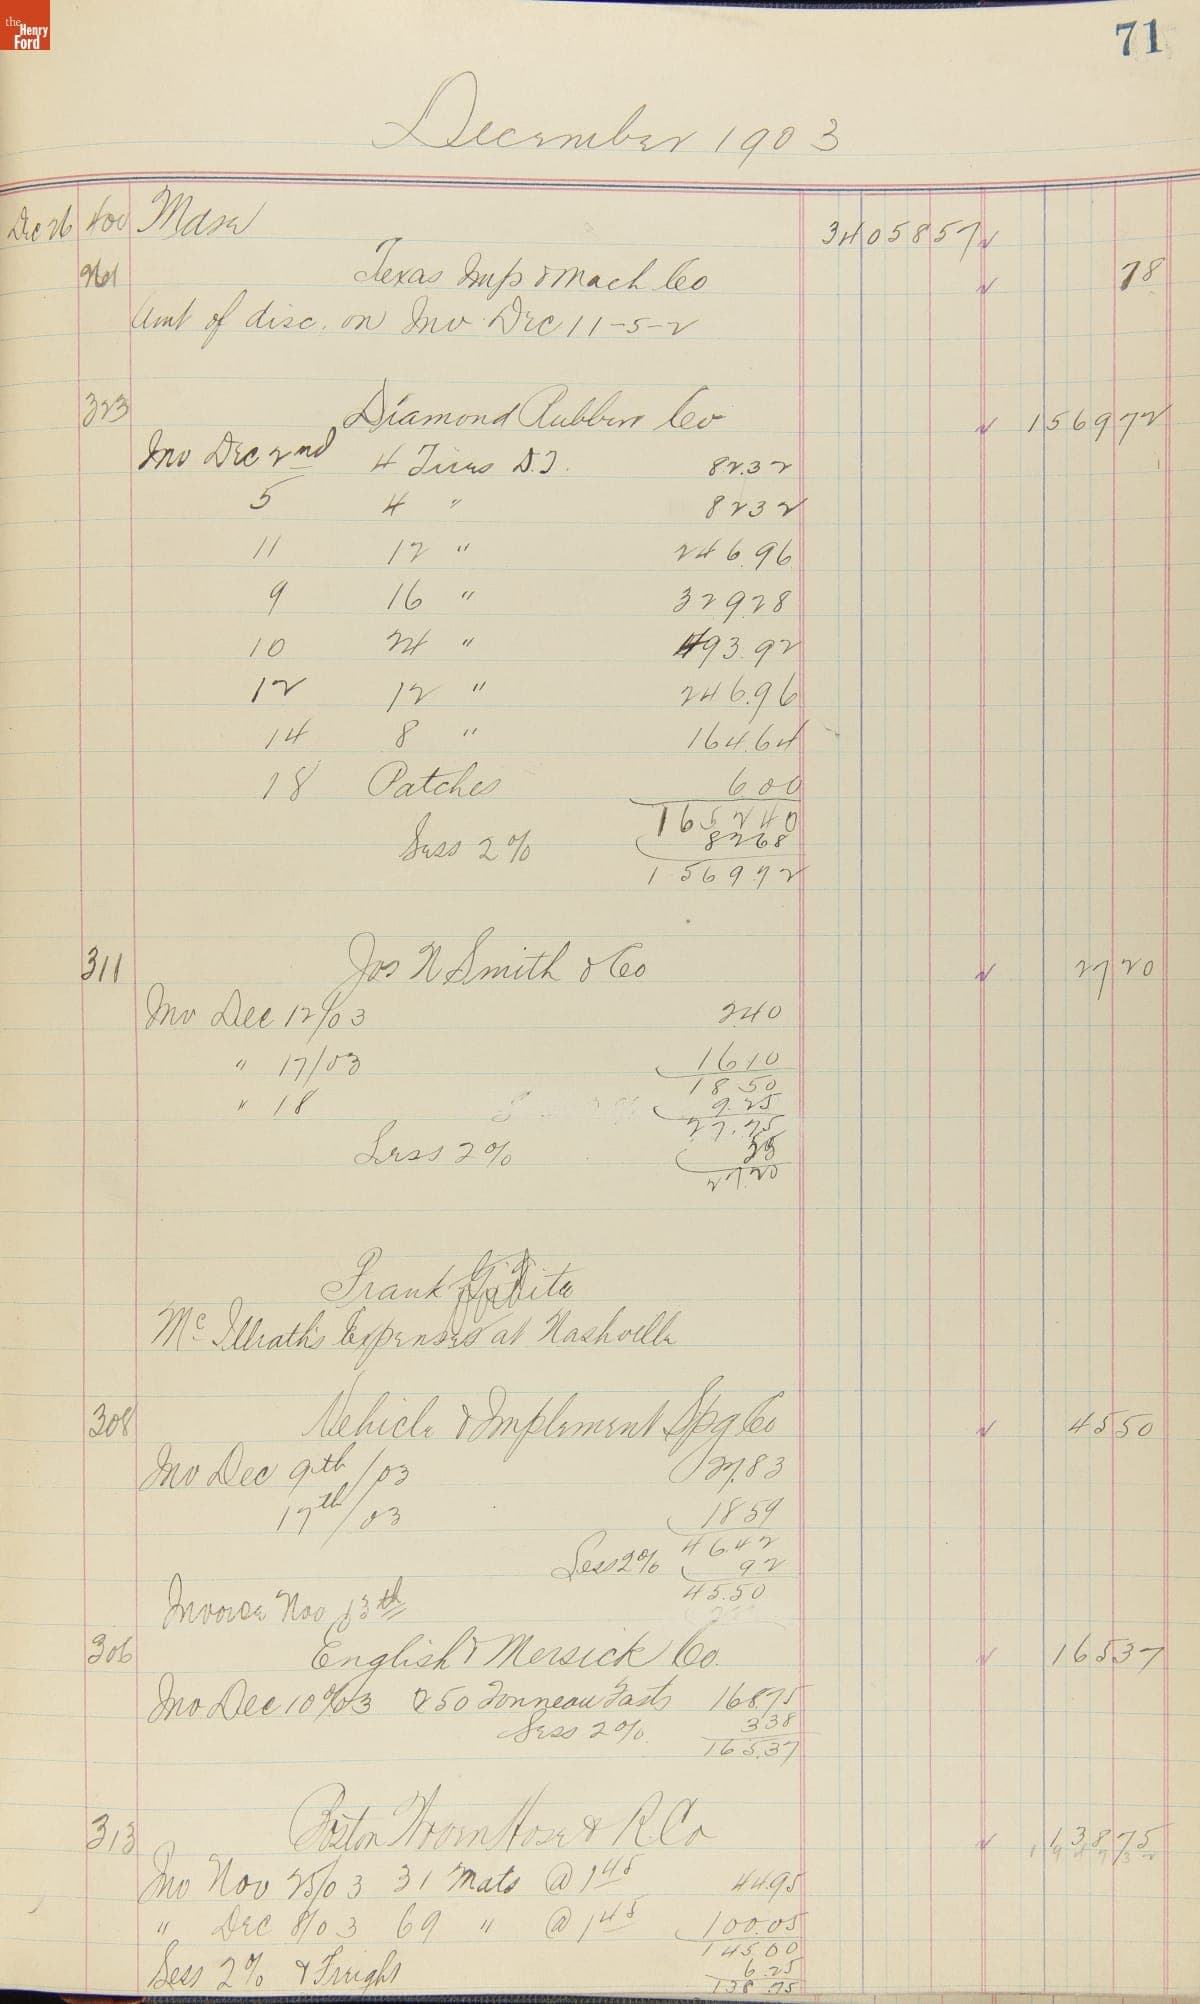 the Henry Ford
71
December 1903
Dec 26 400 Mdse 34058 57
Texas Imp & Mach Co 78
Amt of disc. on Inv Dec 11-5-2
323 Diamond Rubber Co 1569 72
Inv Dec 2nd 4 Tires D.T. 82.32
5 4 " 82 32
11 12 " 246.96
9 16 " 329 28
10 24 " 493.92
12 12 " 246.96
14 8 " 164.64
18 Patches 6.00
1652 40
Less 2% 82 68
1569.72
311 Jos N Smith & Co 27 20
Inv Dec 12/03 2.40
" 17/03 16 10
18 50
" 18 9.25
27.75
Less 2% 55
27.20
Frank
Mc Illrath's Expenses at Nashville
308 Vehicle & Implement Spg Co 45 50
Inv Dec 9th/03 27.83
17th/03 18 59
46.42
Less 2% 92
45.50
Invoice Nov 13th
306 English & Mersick Co. 165 37
Inv Dec 10"/03 250 Tonneau Fasts 168.75
Less 2% 3 38
165.37
313 Boston Woven Hose & R Co 138 75
Inv Nov 25/03 31 Mats @ 1 45 44.95
" Dec 8/03 69 " @ 1 45 100.05
145.00
Less 2% & Freight 6.25
138.75